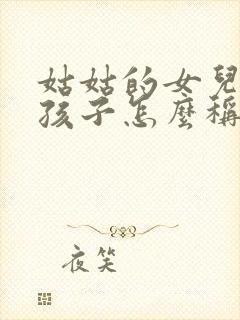 姑姑的女兒
孩子怎麼稱
夜笑